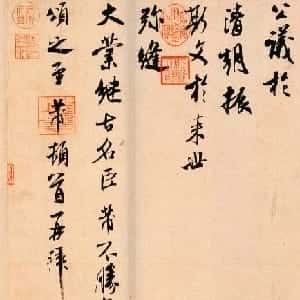 公議於
清朝振
斯文於来世
弥縫
大業継古名臣芾不勝
頌之至芾頓首再拜